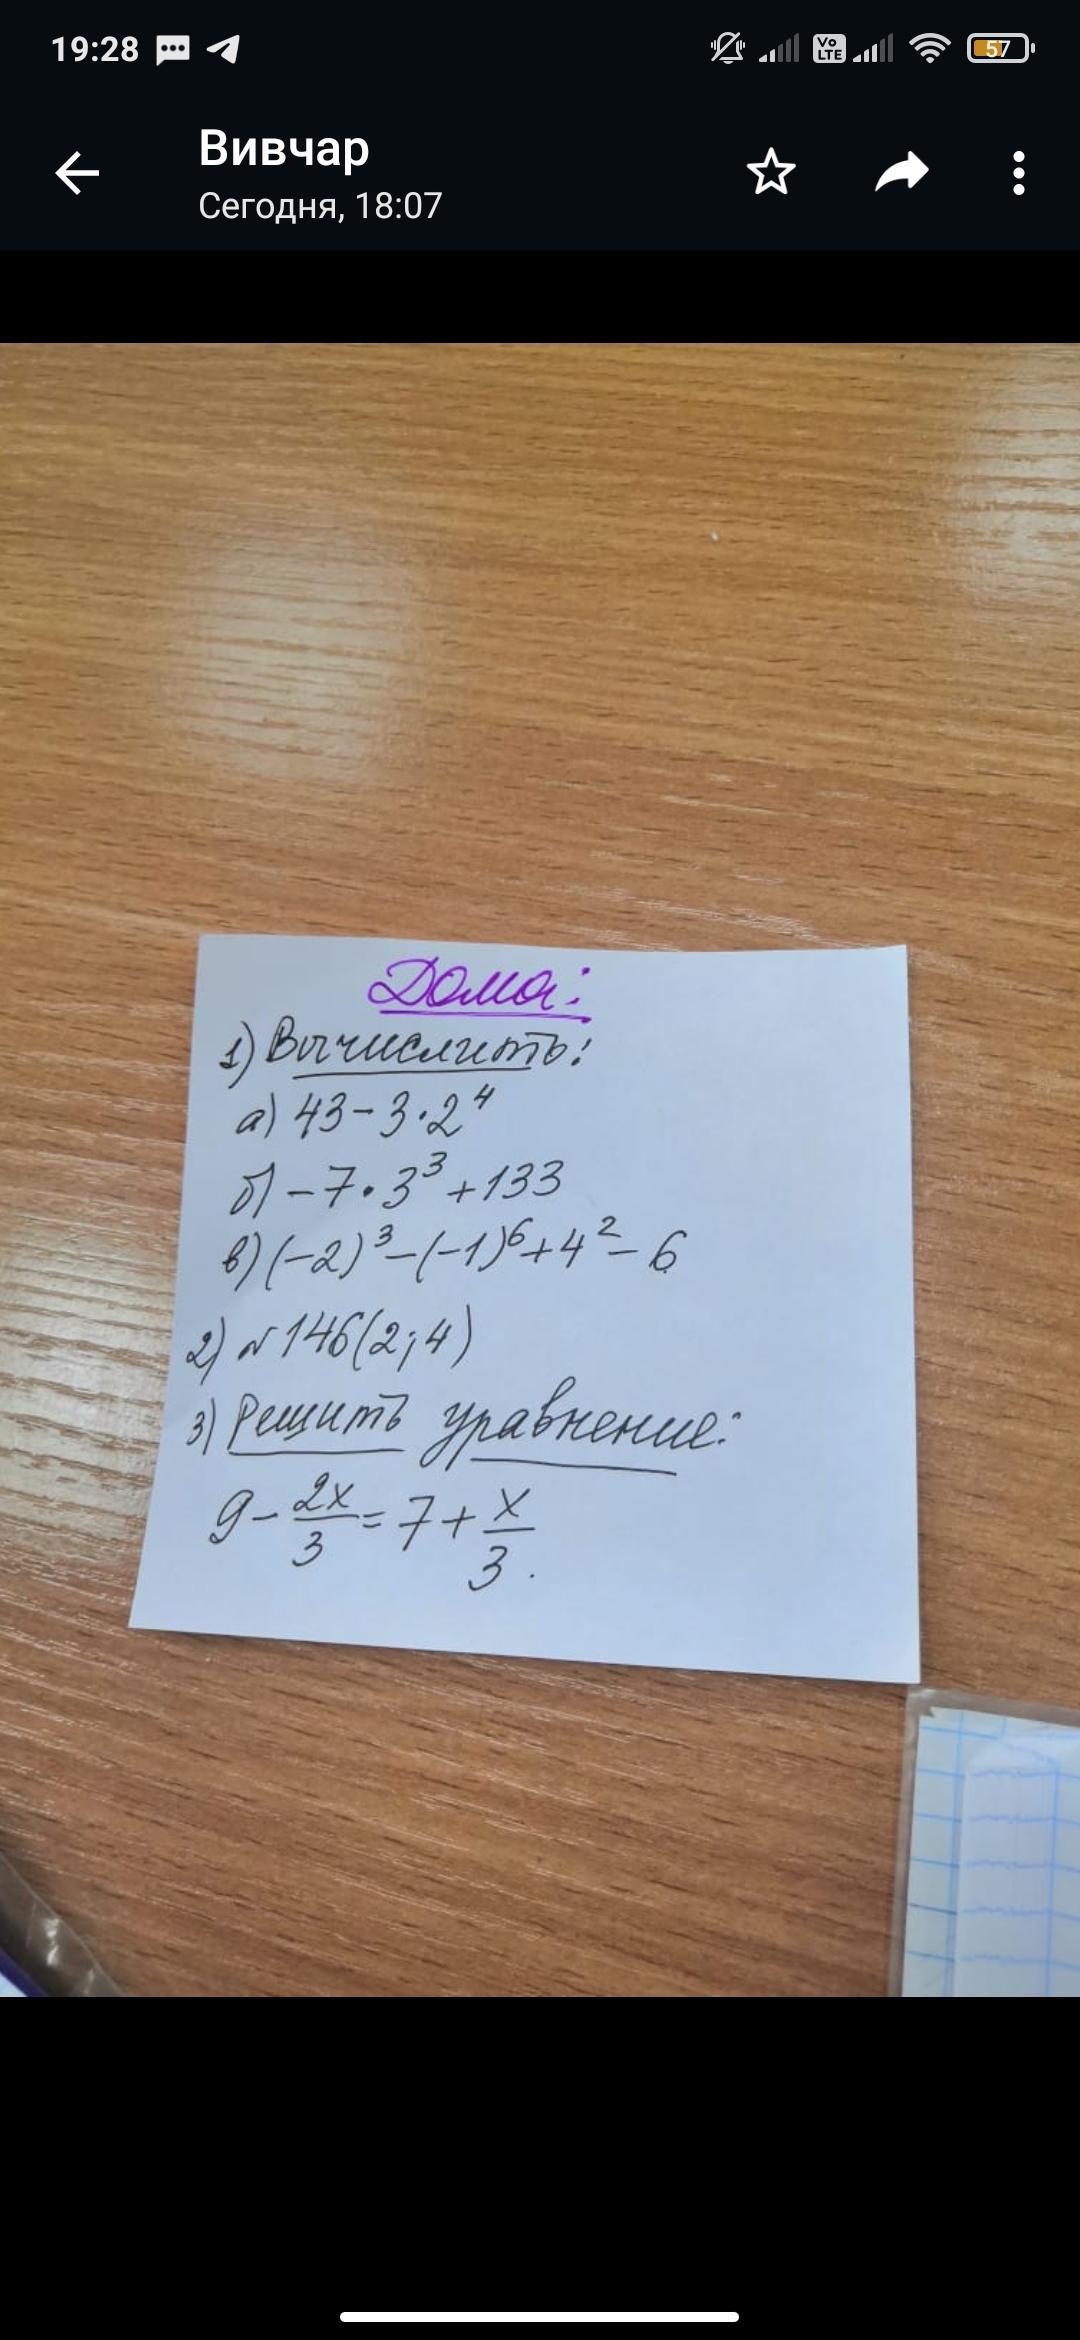 19:28
Vo LTE
57
Вивчар
Сегодня, 18:07
Дома:
1) Вычислить:
а) 43 - 3·2⁴
б) - 7·3³ + 133
в) (-2)³ - (-1)⁶ + 4² - 6
2) №146(2;4)
3) Решить уравнение:
9 - 2x/3 = 7 + x/3.